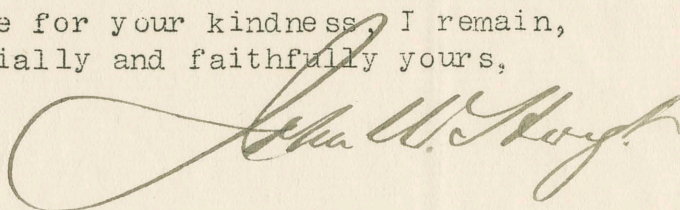 e for your kindness, I remain,
ially and faithfully yours,
John W. Hoyt.